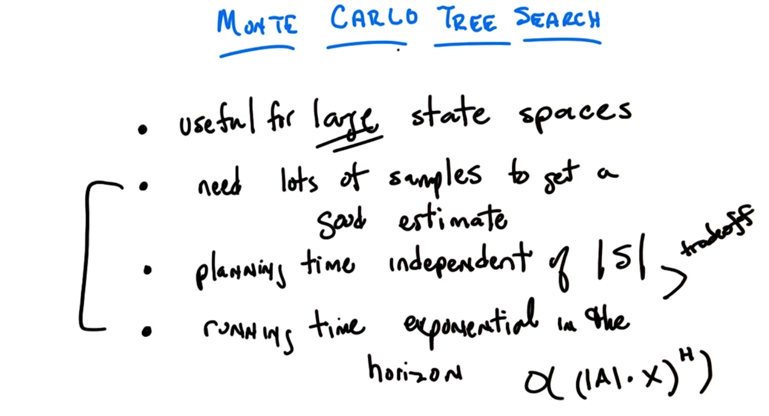 MONTE CARLO TREE SEARCH
• useful for large state spaces
• need lots of samples to get a
good estimate
• planning time independent of |S|
tradeoff
• running time exponential in the
horizon O((|A|·X)^H)